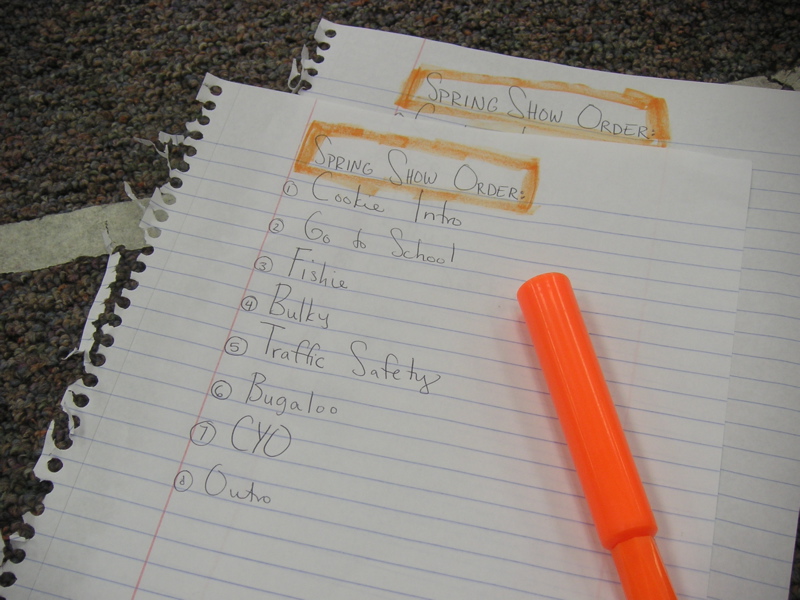 SPRING SHOW ORDER:
SPRING SHOW ORDER:
① Cookie Intro
② Go to School
③ Fishie
④ Bulky
⑤ Traffic Safety
⑥ Bugaloo
⑦ CYO
⑧ Outro